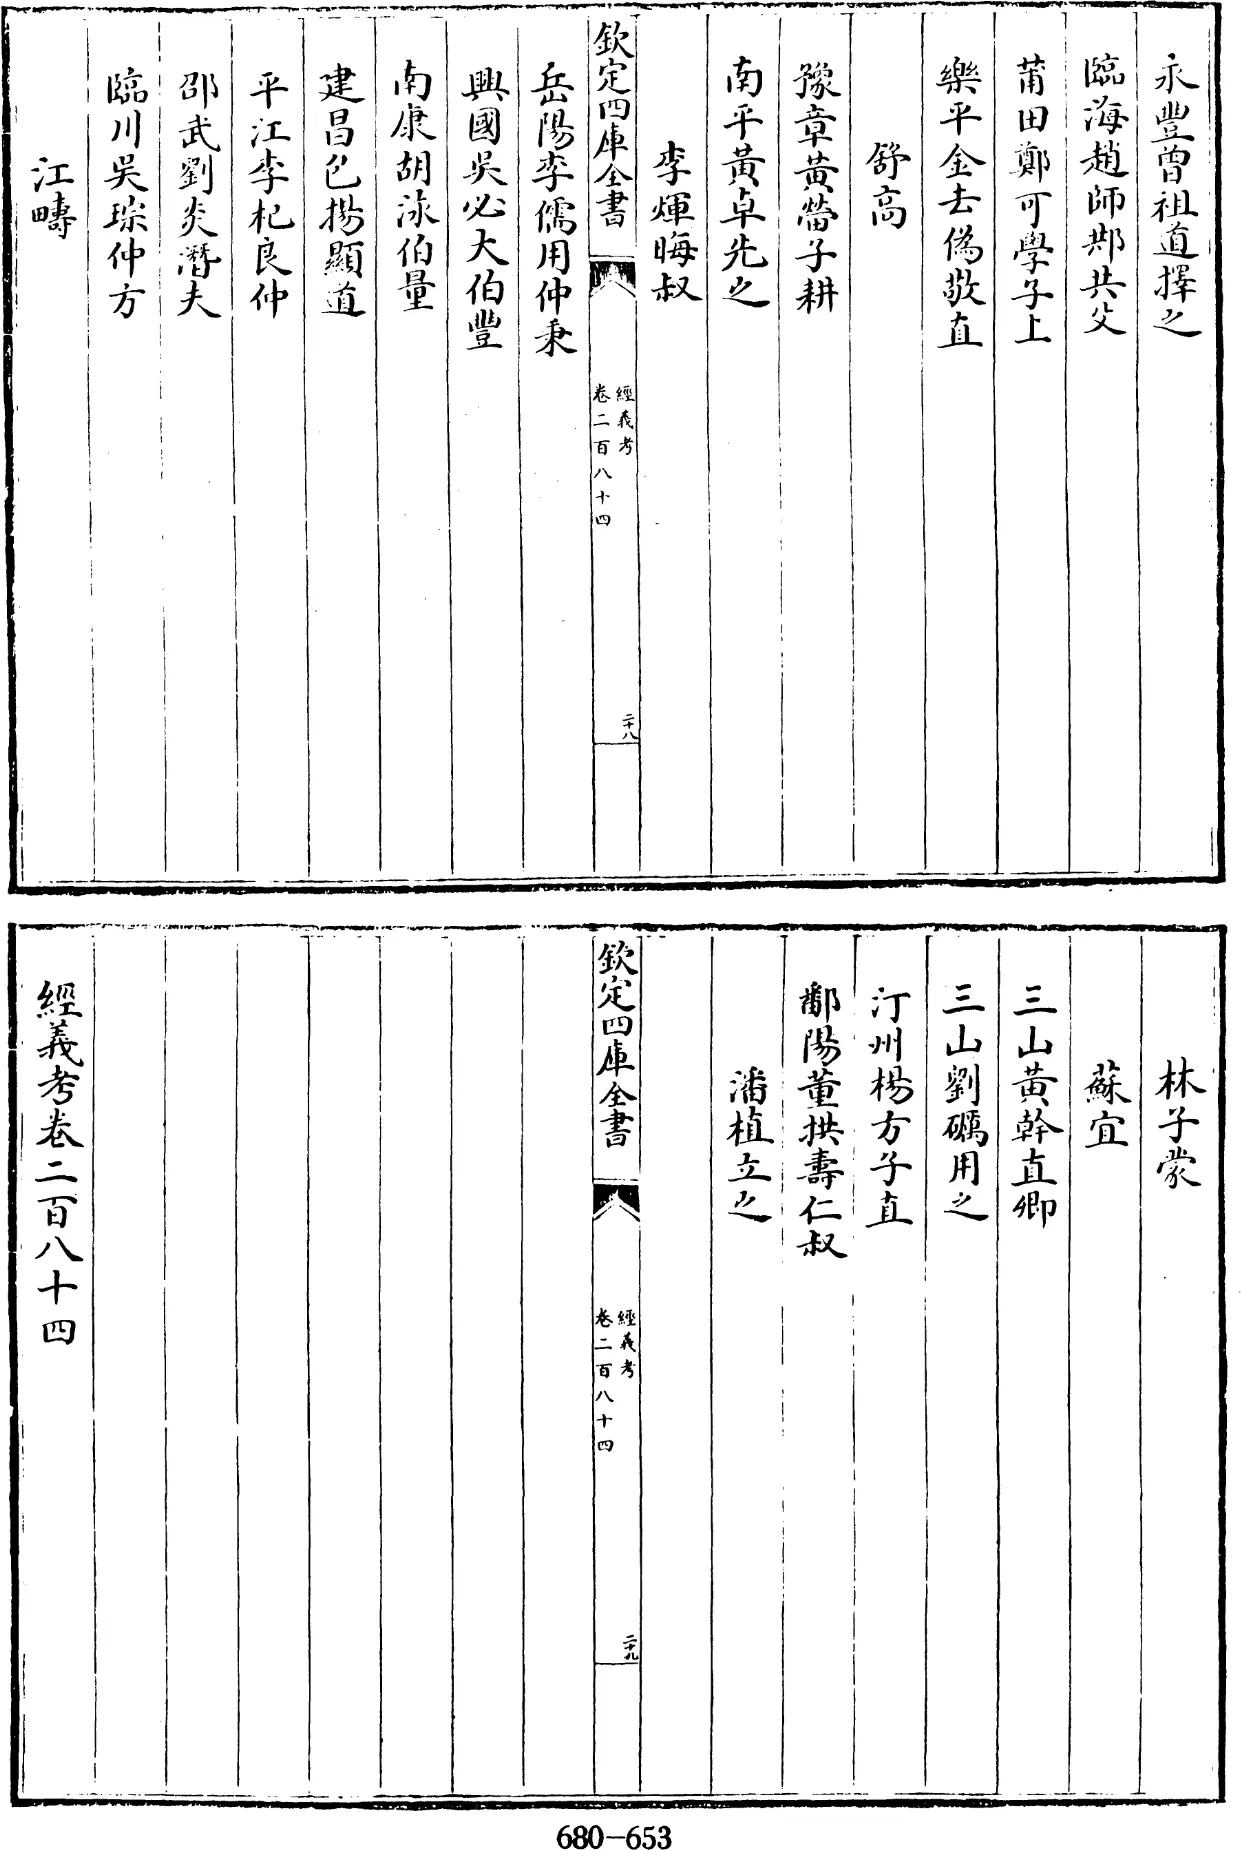 永豐曾祖道擇之
臨海趙師郱共父
莆田鄭可學子上
樂平金去偽敬直
舒高
豫章黃㽦子耕
南平黃卓先之
李煇晦叔
欽定四庫全書
經義考
卷二百八十四
二十八
岳陽李儒用仲秉
興國吳必大伯豐
南康胡泳伯量
建昌包揚顯道
平江李杞良仲
邵武劉炎潛夫
臨川吳琮仲方
江疇
林子蒙
蘇宜
三山黃幹直卿
三山劉礪用之
汀州楊方子直
鄱陽董拱壽仁叔
潘植立之
欽定四庫全書
經義考
卷二百八十四
二十九
經義考卷二百八十四
680-653